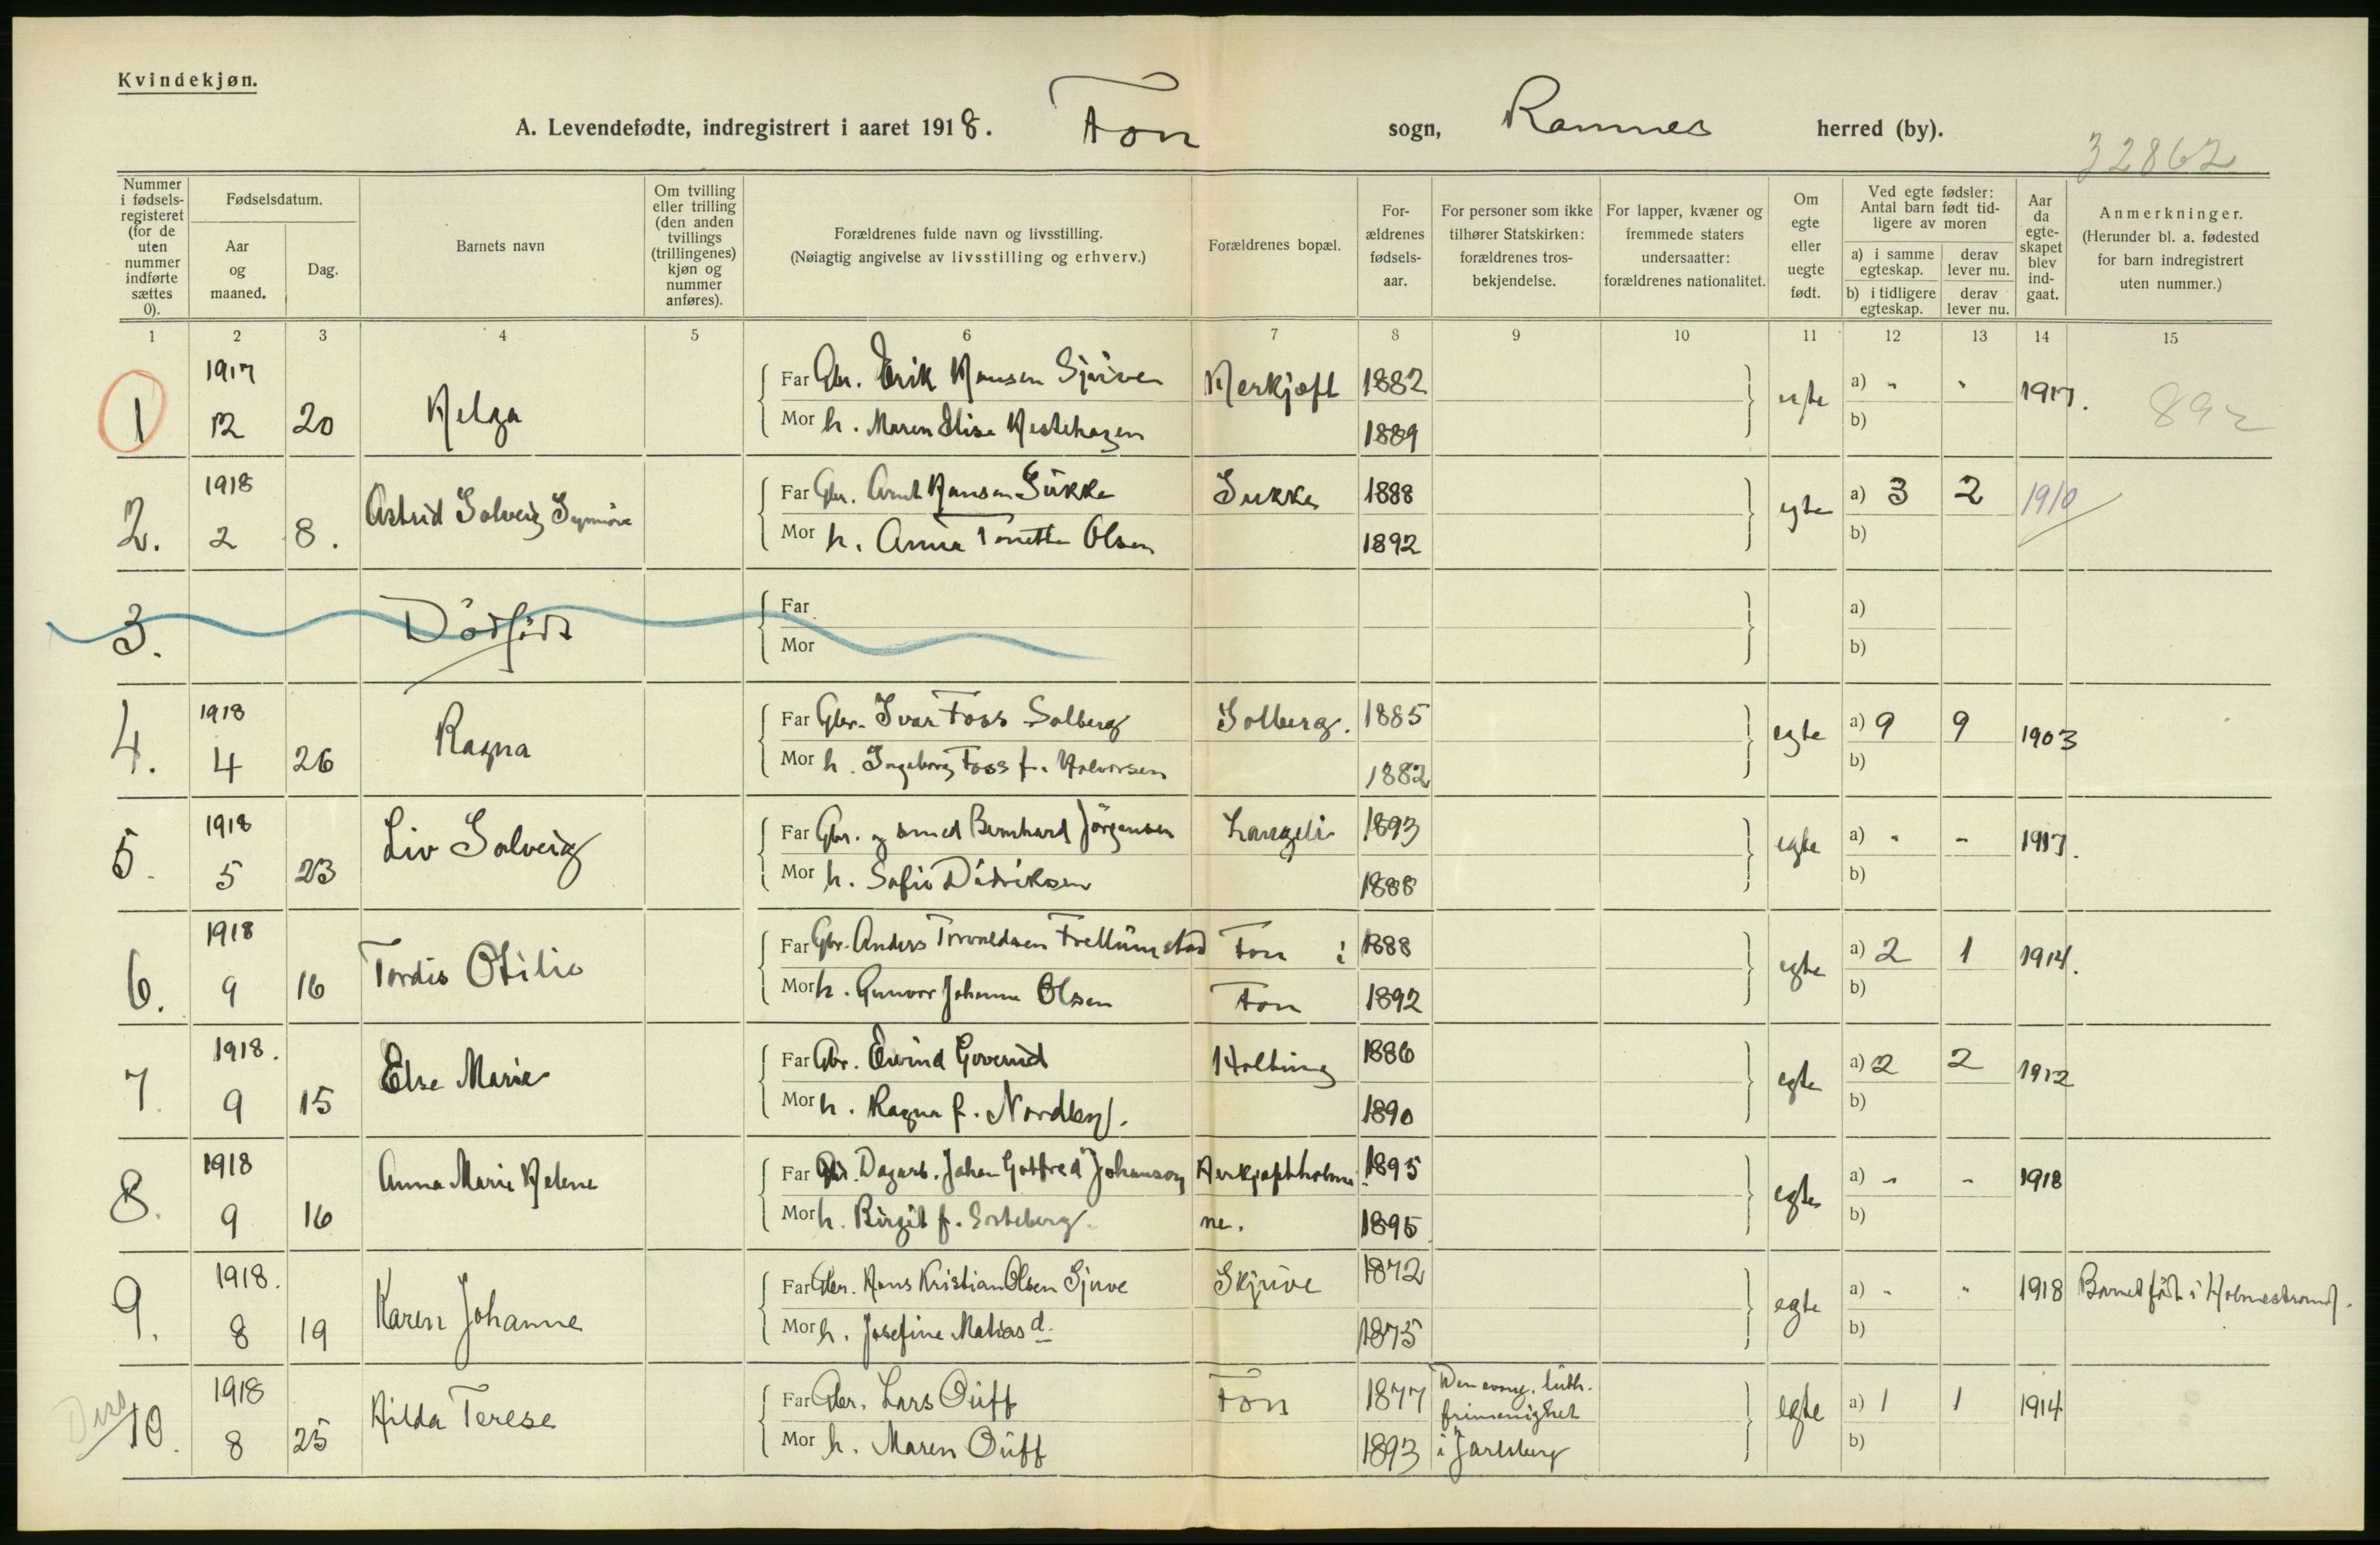 Kvindekjøn.
A. Levendefødte, indregistrert i aaret 1918. Fon sogn, Ramnes herred (by).
32862
Nummer i fødselsregisteret (for de uten nummer indførte sættes 0).
Fødselsdatum.
Aar og maaned.
Dag.
Barnets navn
Om tvilling eller trilling (den anden tvillings (trillingenes) kjøn og nummer anføres).
Forældrenes fulde navn og livsstilling.
(Nøiagtig angivelse av livsstilling og erhverv.)
Forældrenes bopæl.
Forældrenes fødselsaar.
For personer som ikke tilhører Statskirken: forældrenes trosbekjendelse.
For lapper, kvæner og fremmede staters undersaatter: forældrenes nationalitet.
Om egte eller uegte født.
Ved egte fødsler: Antal barn født tidligere av moren
a) i samme egteskap. derav lever nu.
b) i tidligere egteskap. derav lever nu.
Aar da egteskapet blev indgaat.
Anmerkninger.
(Herunder bl. a. fødested for barn indregistrert uten nummer.)
1 2 3 4 5 6 7 8 9 10 11 12 13 14 15
1 1917 12 20 Helga Far Gbr. Erik Hansen Sjuve Herkjøft 1882 egte a) " " 1917. 892
Mor h. Maren Elise Hestehagen 1889 b)
2. 1918 2 8. Astrid Solveig Synnöve Far Gbr. Arnt Hansen Sukke Sukke 1888 egte a) 3 2 1910
Mor h. Anna Tonette Olsen 1892 b)
3. Dödfödt Far a)
Mor b)
4. 1918 4 26 Ragna Far Gbr. Ivar Foss Solberg Solberg. 1885 egte a) 9 9 1903
Mor h. Ingeborg Foss f. Halvorsen 1882 b)
5. 1918 5 23 Liv Solveig Far Gbr. og smed Bernhard Jörgensen Langeli 1893 egte a) " " 1917.
Mor h. Sofie Didriksen 1888 b)
6. 1918 9 16 Tordis Otilie Far Gbr. Anders Torvaldsen Frellumstad Fon i 1888 egte a) 2 1 1914.
Mor h. Gunvor Johanne Olsen Fon 1892 b)
7. 1918. 9 15 Else Marie Far Gbr. Eivind Goverud Holtung 1886 egte a) 2 2 1912
Mor h. Ragna f. Nordby. 1890 b)
8. 1918 9 16 Anna Marie Helene Far Dagarb. Johan Gotfred Johanson Herkjøftholme 1895 egte a) " " 1918
Mor h. Birgit f. ne. 1895 b)
9. 1918. 8 19 Karen Johanne Far Gbr. Hans Kristian Olsen Sjuve Skjuve 1872 egte a) " " 1918 Barnet födt i Holmestrand.
Mor h. Josefine Matias d. 1875 b)
Diss 10. 1918 8 25 Hilda Terese Far Gbr. Lars Ouff Fon 1877 Den evang. luth. frimenighet egte a) 1 1 1914
Mor h. Maren Ouff 1893 i Jarlsberg b)